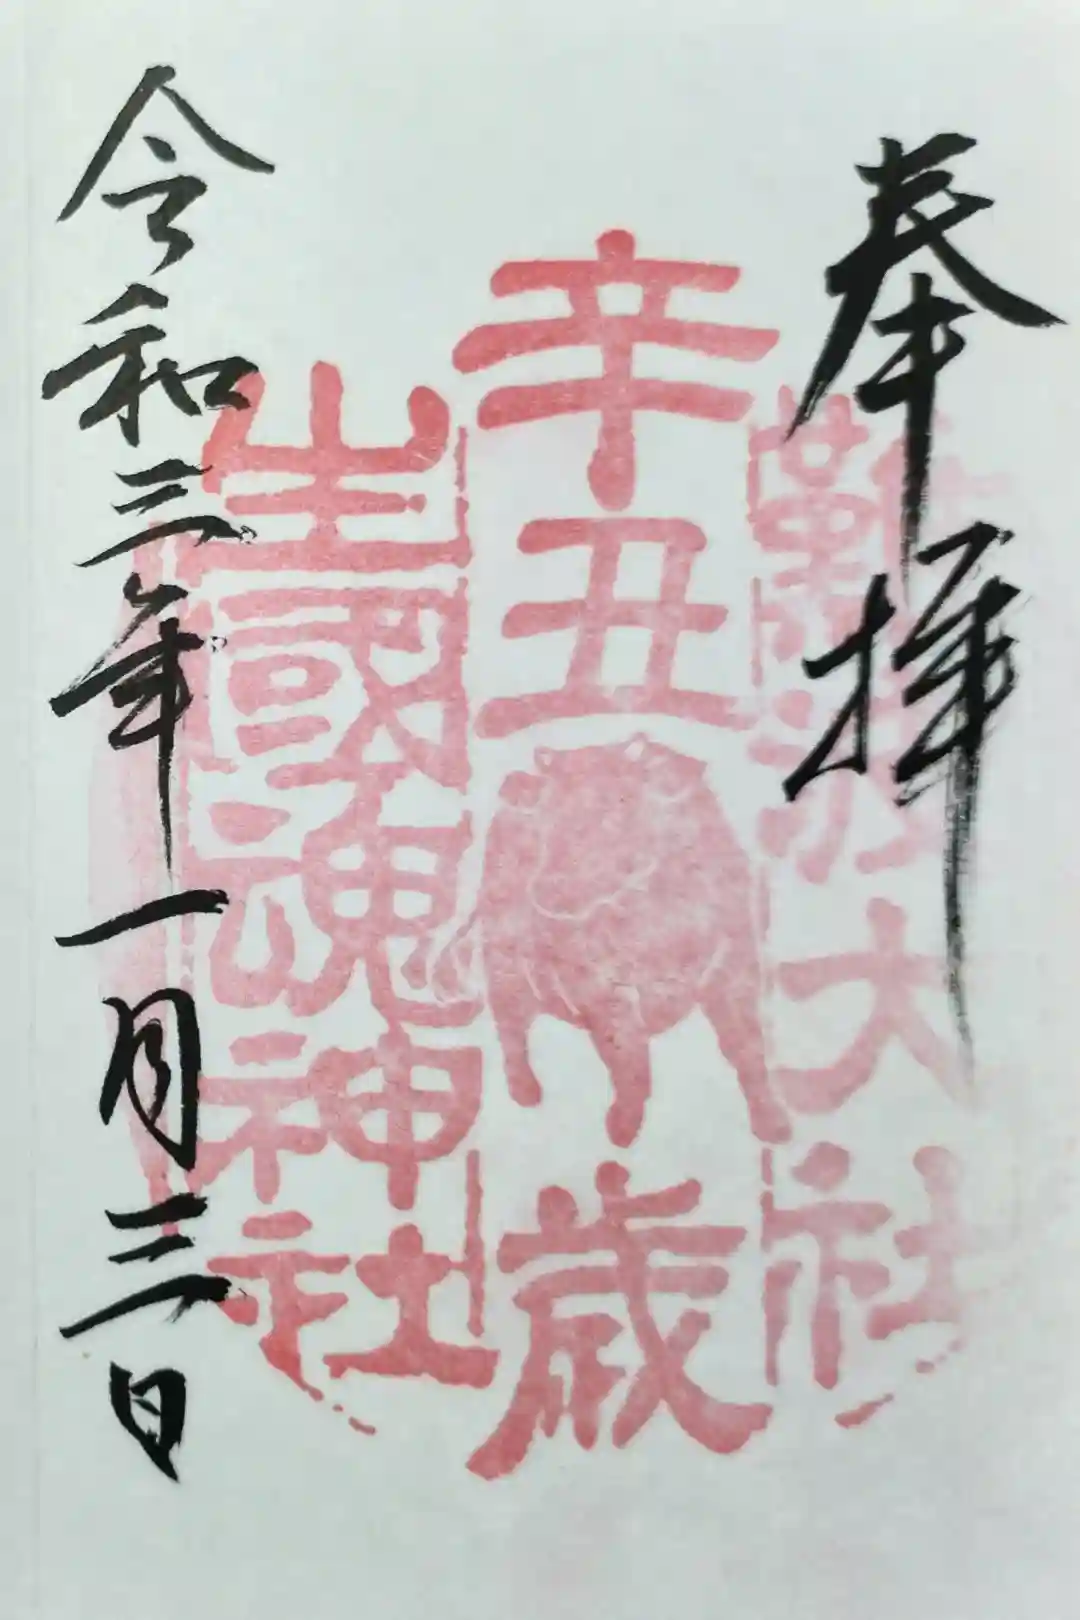 奉拝
難波大社
辛丑歳
生國魂神社
令和三年一月三日